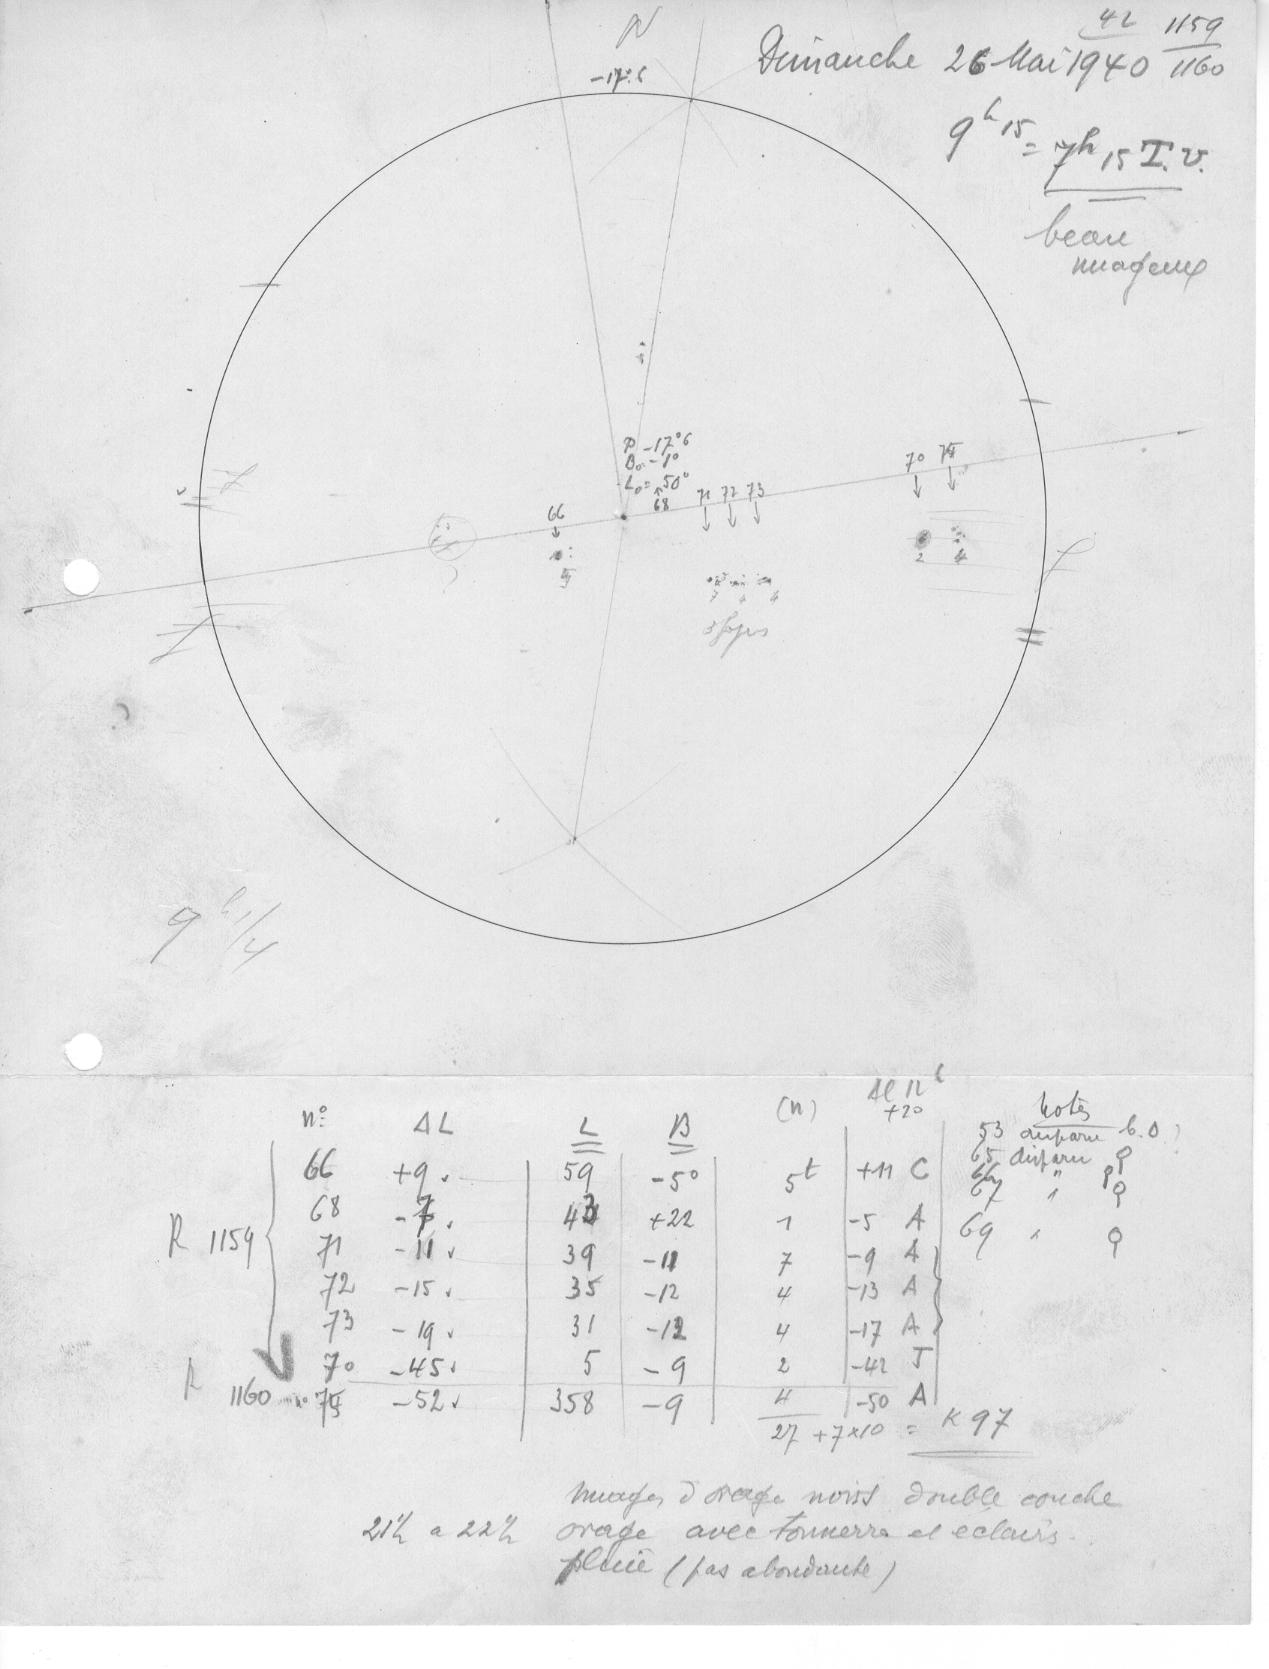 42 1159
Dimanche 26 Mai 1940 1160
N
-17°6
9h15 = 7h15 T.U.
beau
nuageux
P -17°6
B₀ -1°
L₀ = 50°
68
66
71 72 73
70 75
5
7 4 4
2 4
3 foyers
9h1/4
n° ΔL L B (n)
+20
Notes
53 disparu b.O?
65 disparu
66 "
67 "
69 "
R 1159
66 +9 59 -5° 5t +11 C
68 -7 43 +22 1 -5 A
71 -11 39 -11 7 -9 A
72 -15 35 -12 4 -13 A
73 -19 31 -12 4 -17 A
70 -45 5 -9 2 -42 J
R 1160 75 -52 358 -9 4 -50 A
27 + 7×10 = K 97
nuages d'orage noirs double couche
21h a 22h orage avec tonnerre et éclairs.
pluie (pas abondante)